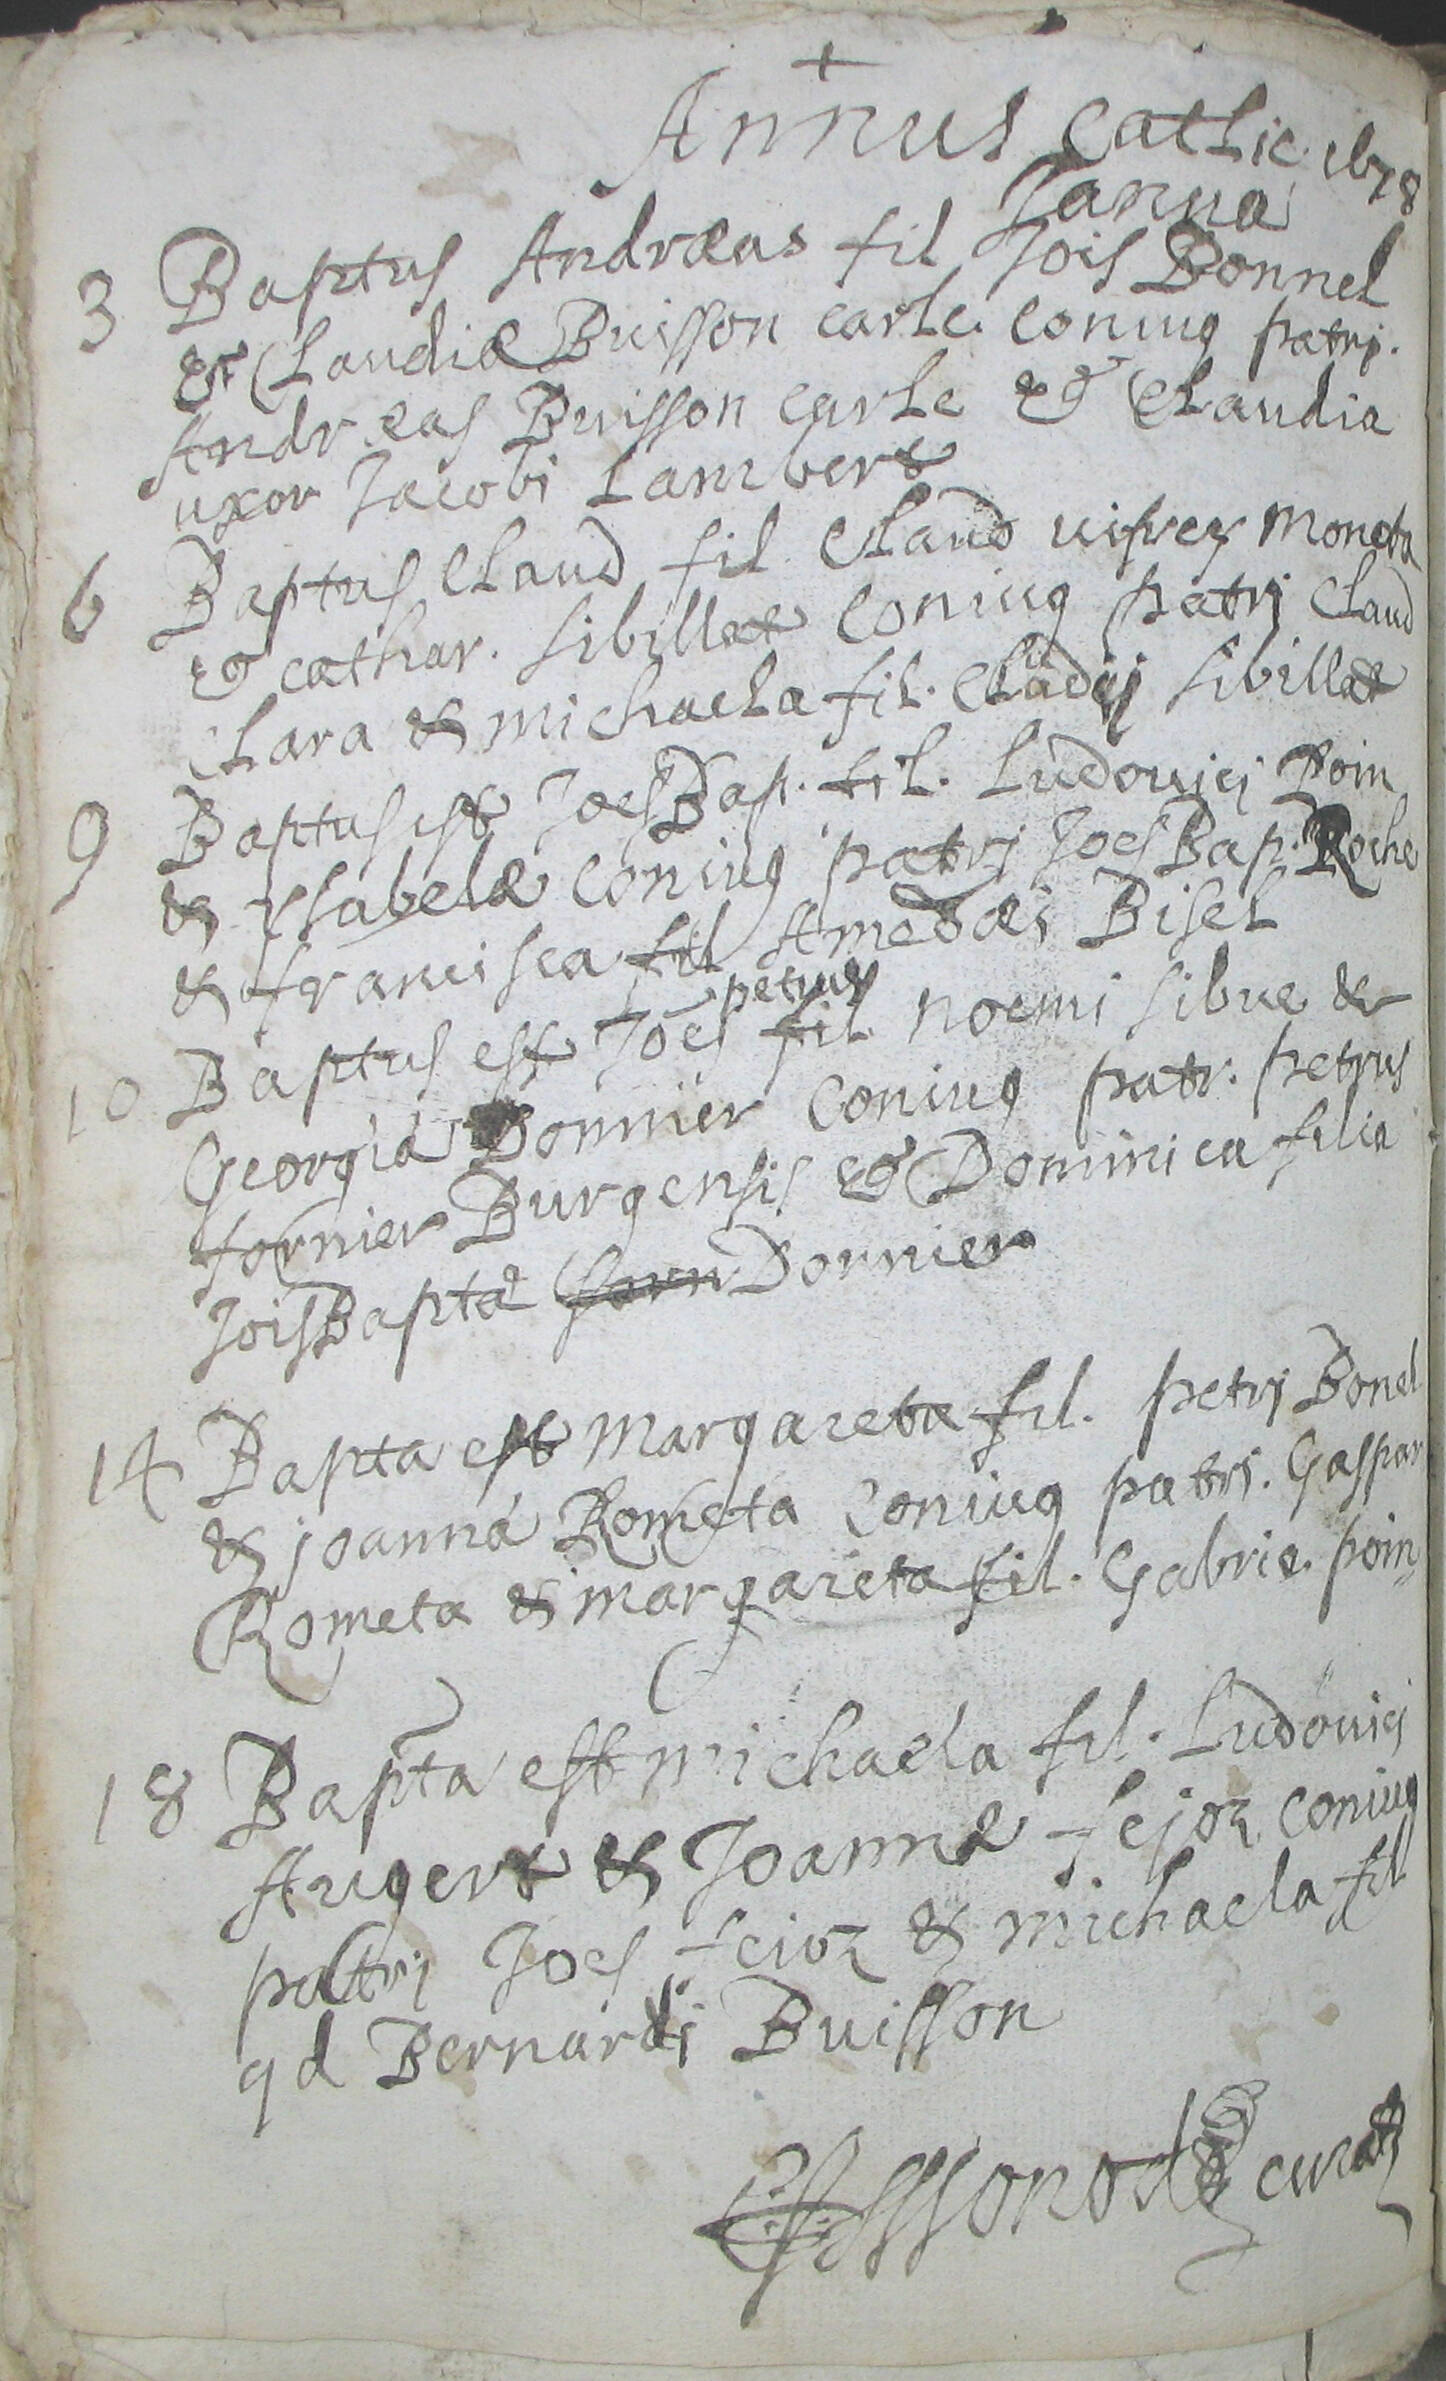 +
Annus Cathic 1678
Janua
3 Baptus Andræas fil Jois Bonnel
& Claudiæ Buisson carle. coniug patrj.
Andreas Buisson carle & Claudia
uxor Jacobi Lambert
6 Baptus Claud fil Claud Moneta
& cathar. Sibillet coniug patrj Claud
Clara & michaela fil. Claudij Sibillet
9 Baptus est Joes Bap. fil. Ludouicj Poin
& ysabelæ coniug patrj Joes Bap. Roche
& francisca fil Amedæi Bisel
petrus
10 Baptus est Joes fil noemi Sibue &
Georgia Donnier coniug patr. petrus
fornier Burgensis & Dominica filia
Jois Bapta forn Dornier
14 Bapta est margareta fil. petrj Bonel
& joanna Rometa coniug patrj. Gaspar
Rometa & margareta fil. Gabrie. poin
18 Bapta est michaela fil. Ludouicj
Augert & Joanna fejoz coniug
patrj Joes feioz & michaela fil
qd Bernardi Buisson
curatz